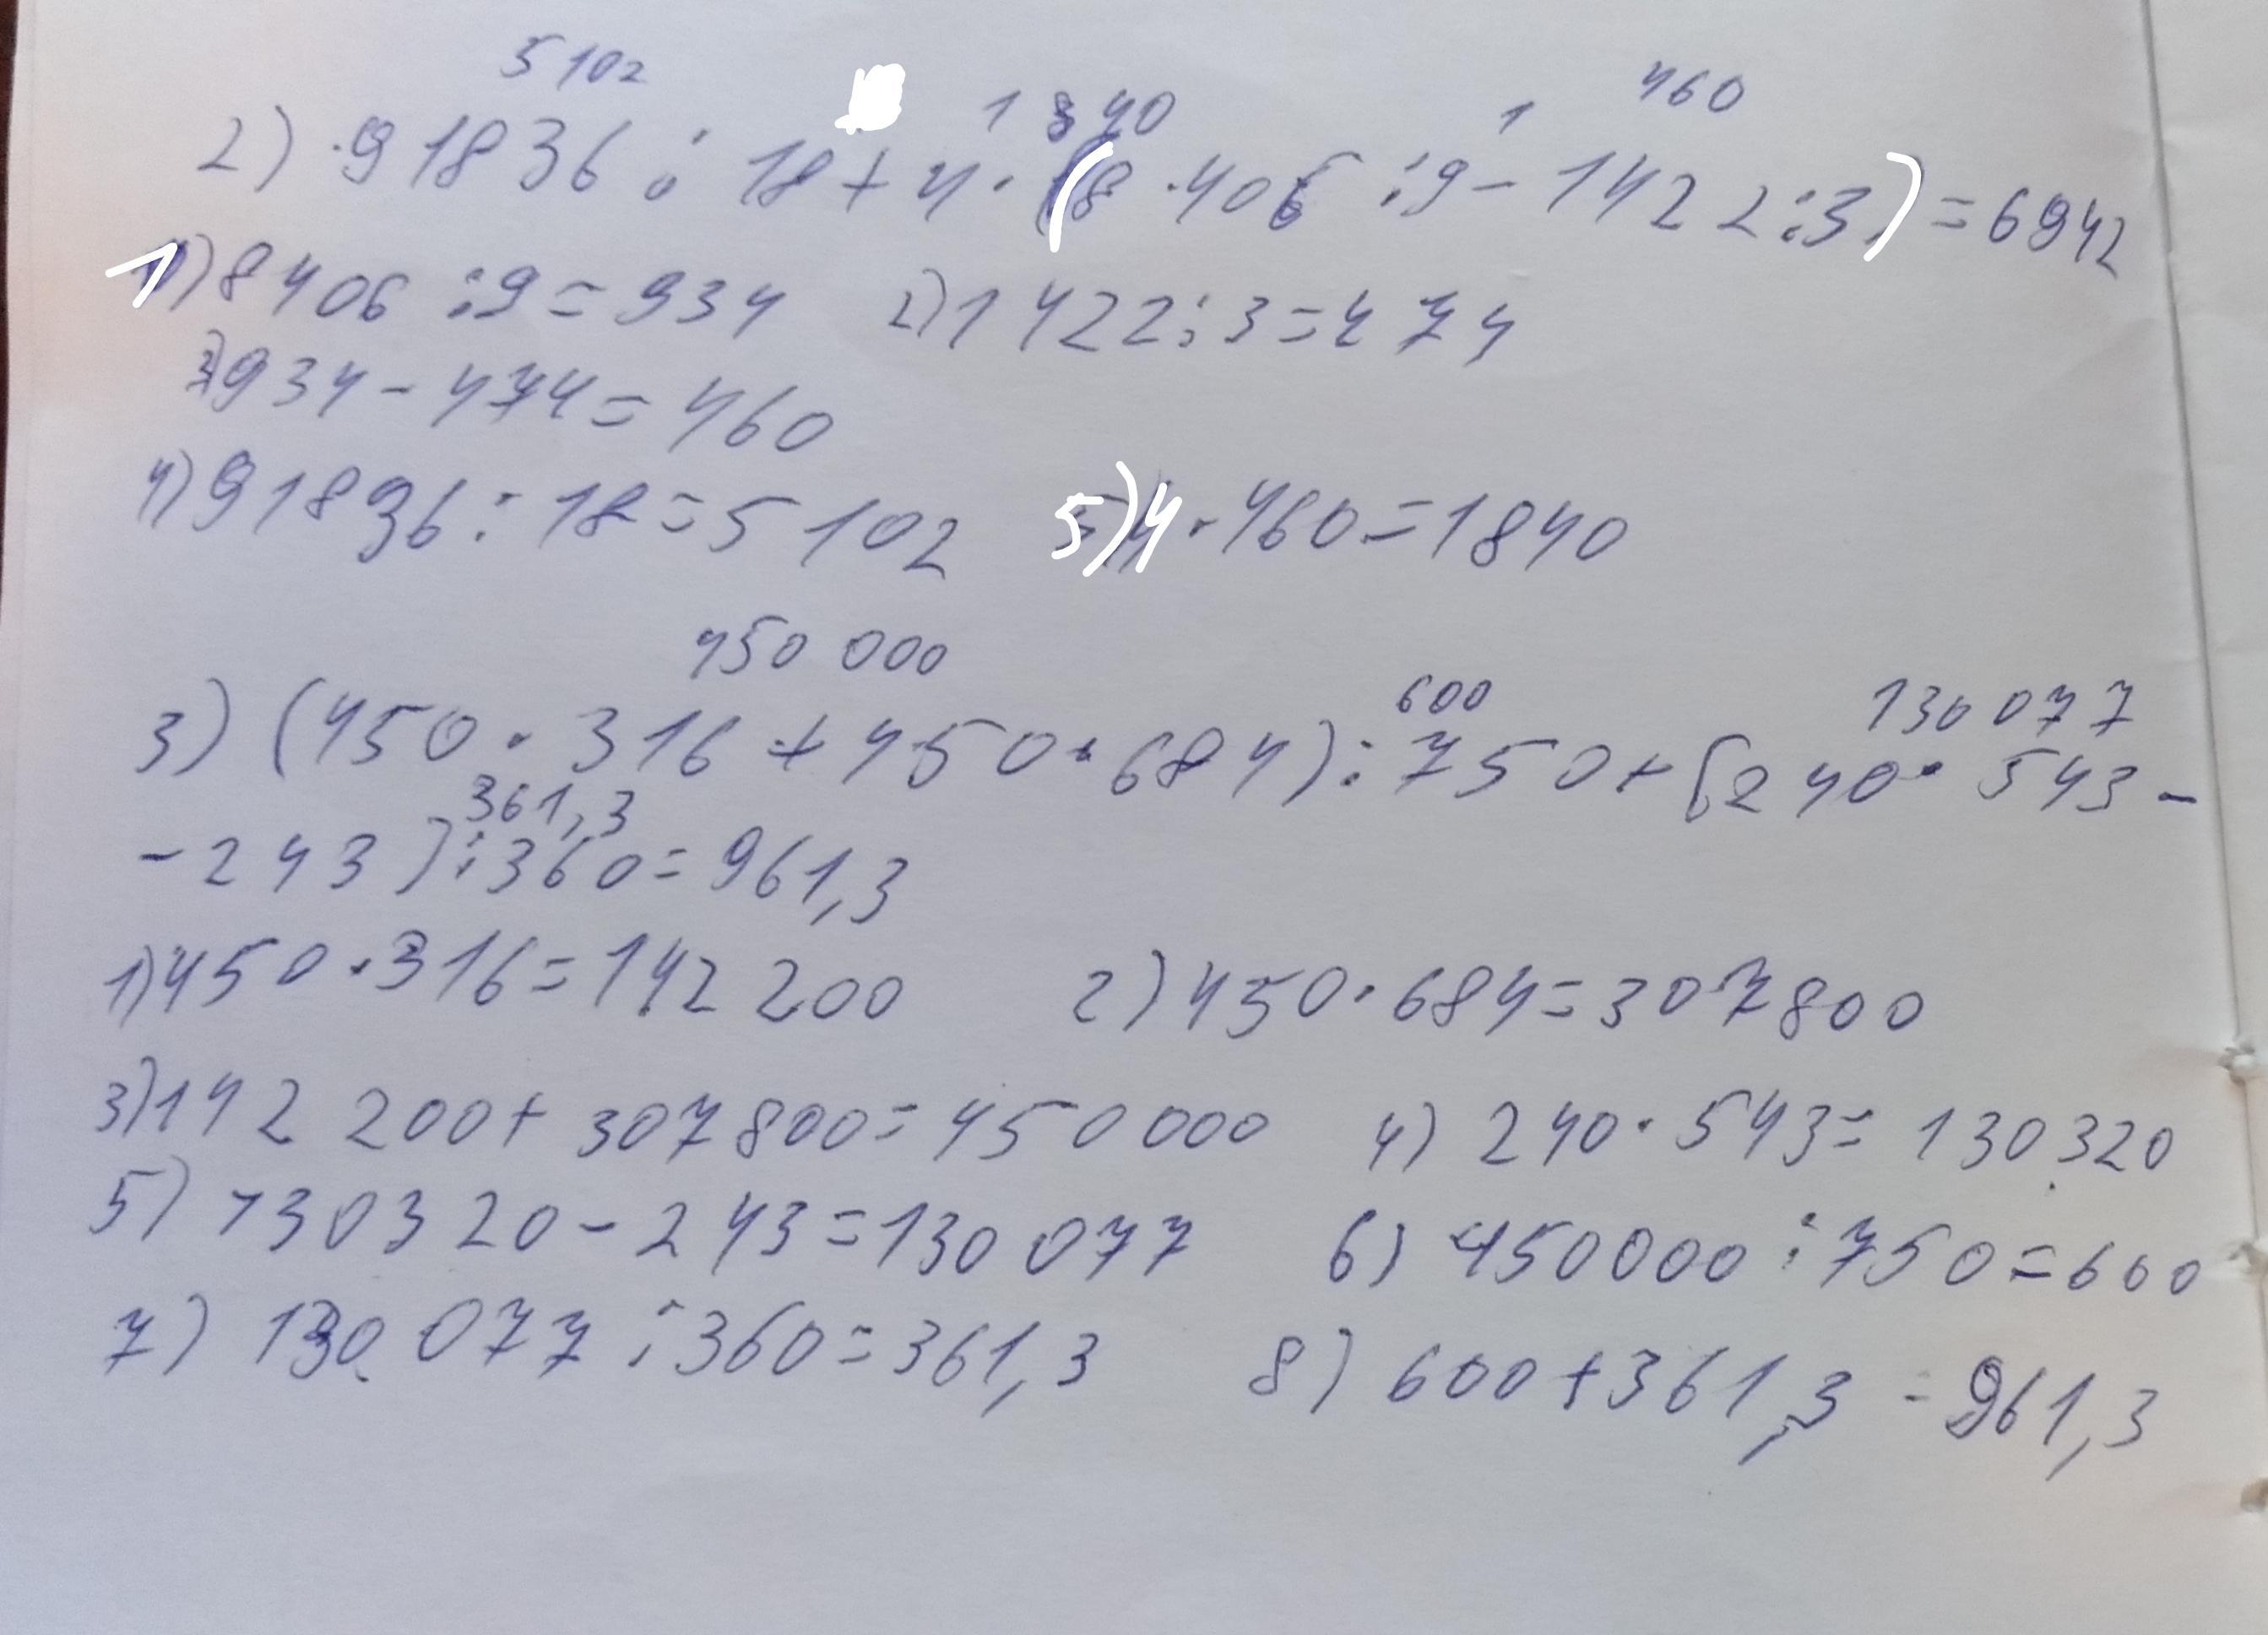 5102 1840 1 460
2) 91836 : 18 + 4 · (8 406 : 9 - 1422 : 3) = 6942
1) 8406 : 9 = 934 2) 1422 : 3 = 474
3) 934 - 474 = 460
4) 91836 : 18 = 5102 5) 4 · 460 = 1840
450 000 600 130 077
3) (450 · 316 + 450 · 684) : 750 + (240 · 543 -
361,3
- 243) : 360 = 961,3
1) 450 · 316 = 142 200 2) 450 · 684 = 307800
3) 142 200 + 307800 = 450000 4) 240 · 543 = 130320
5) 130320 - 243 = 130 077 6) 450000 : 750 = 600
7) 130 077 : 360 = 361,3 8) 600 + 361,3 = 961,3